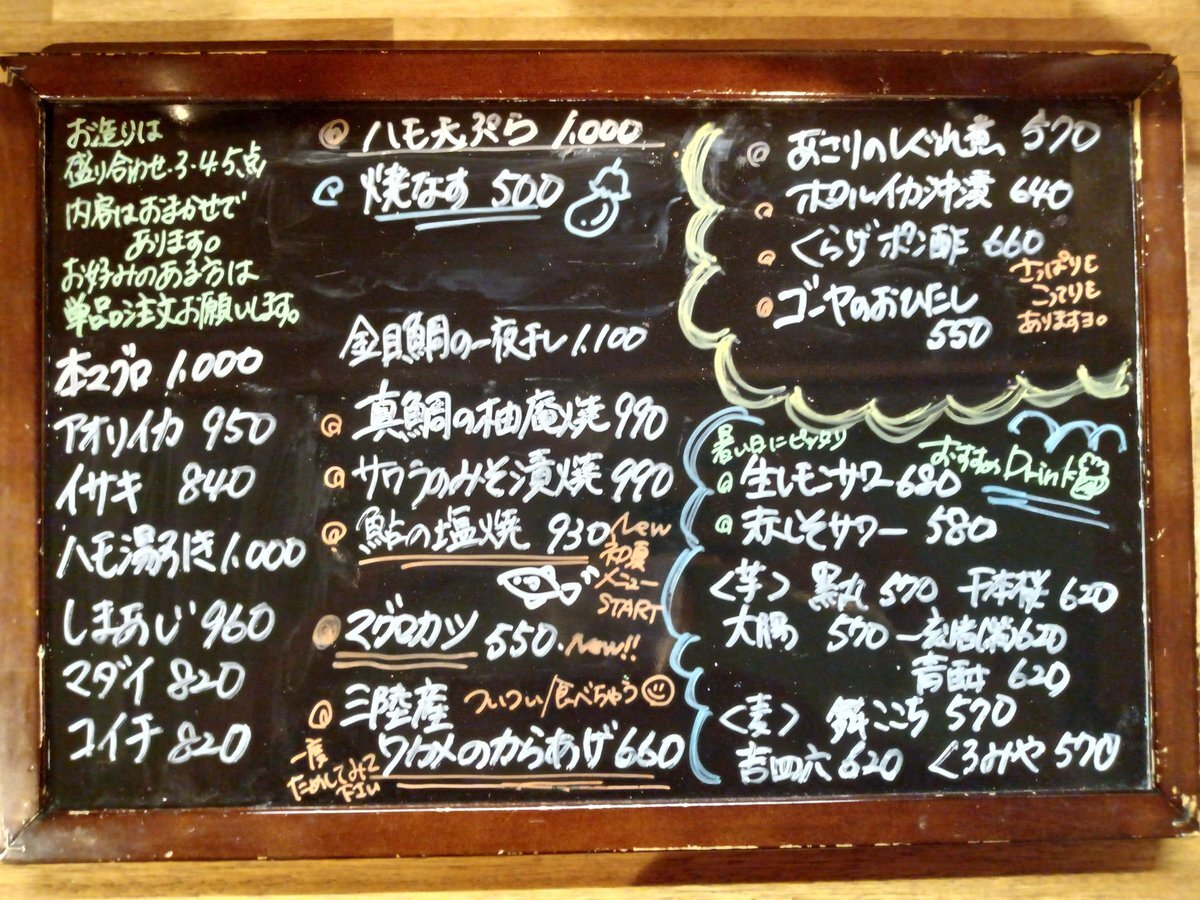 お造りは
盛り合わせ.3.4.5.点
内容はおまかせで
あります。
お好みのある方は
単品の注文お願いします。
本マグロ 1.000
アオリイカ 950
イサキ 840
ハモ湯引き 1.000
しまあじ 960
マダイ 820
コイチ 820
ハモ天ぷら 1.000
焼なす 500
金目鯛の一夜干し 1.100
真鯛の柚庵焼 990
サワラのみそ漬焼 990
鮎の塩焼 930
New
初夏
メニュー
START
マグロカツ 550. New!!
三陸産 ついつい食べちゃう
ワカメのからあげ 660
一度
ためしてみて
下さい
あさりのしぐれ煮 570
ホタルイカ沖漬 640
くらげポン酢 660
ゴーヤのおひたし
550
さっぱりも
こってりも
ありますヨ。
暑い日にピッタリ
おすすめ Drink
生レモンサワー 680
赤しそサワー 580
<芋> 黒丸 570 千本桜 620
大陽 570 一刻者(紫) 620
青酎 620
<麦> 舞ここち 570
吉四六 620 くろみや 570